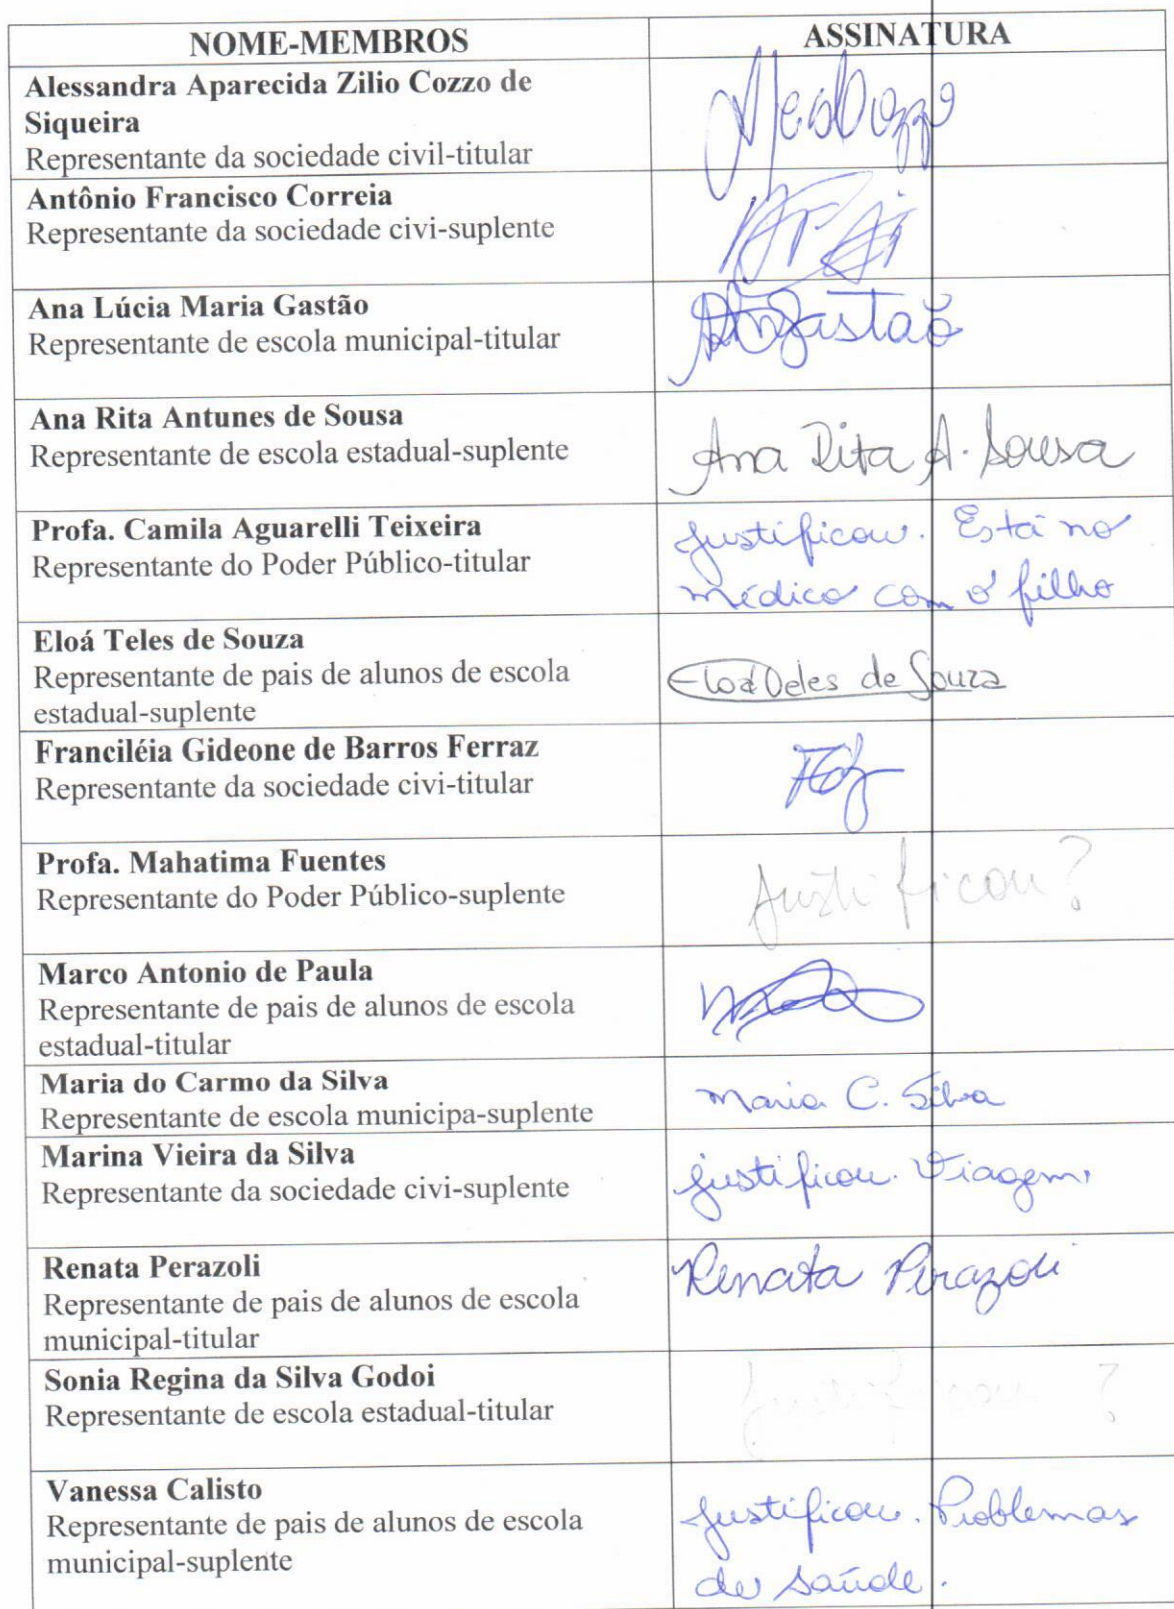 NOME-MEMBROS ASSINATURA
Alessandra Aparecida Zilio Cozzo de
Siqueira
Representante da sociedade civil-titular
Antônio Francisco Correia
Representante da sociedade civi-suplente
Ana Lúcia Maria Gastão
Representante de escola municipal-titular
Ana Rita Antunes de Sousa
Representante de escola estadual-suplente
Ana Rita A. Sousa
Profa. Camila Aguarelli Teixeira
Representante do Poder Público-titular
Justificou. Está no
médico com o filho
Eloá Teles de Souza
Representante de pais de alunos de escola
estadual-suplente
Eloá Teles de Souza
Franciléia Gideone de Barros Ferraz
Representante da sociedade civi-titular
Profa. Mahatima Fuentes
Representante do Poder Público-suplente
Justificou?
Marco Antonio de Paula
Representante de pais de alunos de escola
estadual-titular
Maria do Carmo da Silva
Representante de escola municipa-suplente
Maria C. Silva
Marina Vieira da Silva
Representante da sociedade civi-suplente
justificou. Viagem.
Renata Perazoli
Representante de pais de alunos de escola
municipal-titular
Renata Perazoli
Sonia Regina da Silva Godoi
Representante de escola estadual-titular
Justificou ?
Vanessa Calisto
Representante de pais de alunos de escola
municipal-suplente
Justificou. Problemas
de saúde.